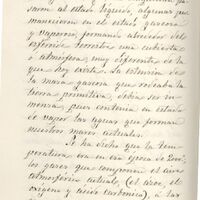 saron al estado líquido, algunas per-
manecieron en el estado gaseoso
y vaporoso, formando alrededor del
esferoide terrestre una cubierta
ó atmósfera muy diferente de la
que hoy existe. La estension de
la masa gaseosa que rodeaba la
tierra primitiva, debia ser in-
mensa, pues contenia en estado
de vapor las aguas que forman
nuestros mares actuales.
Se ha dicho que la tem-
peratura era en esa época de
los gases que componen el aire
atmosférico actual, (el azoe, el
oxígeno y ácido carbónico), á las